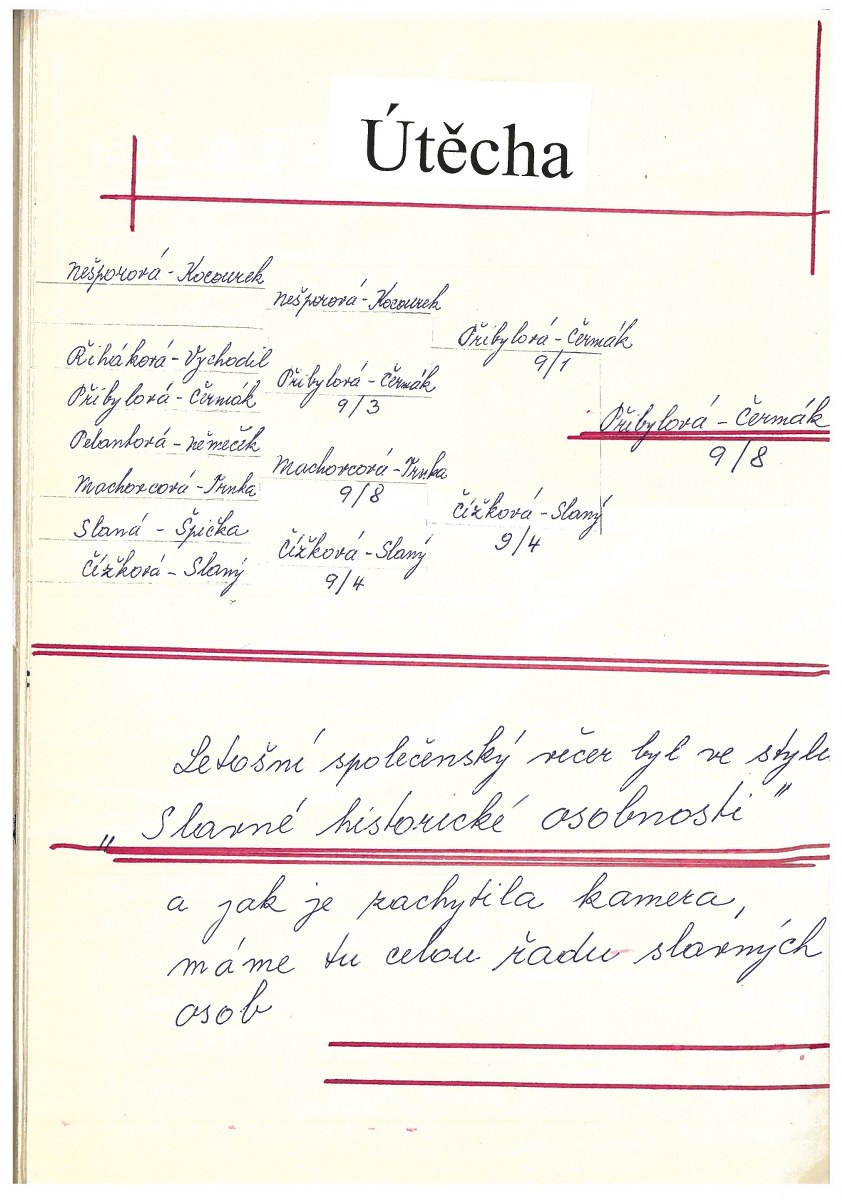 Útěcha
Nešporová - Kocourek
Nešporová - Kocourek
Přibylová - Čermák
9/1
Řiháková - Vychodil
Přibylová - Čermák
Přibylová - Čermák
9/3
Přibylová - Čermák
9/8
Pelantová - Němeček
Machovcová - Trnka
Machovcová - Trnka
9/8
Čížková - Slaný
9/4
Slaná - Špička
Čížková - Slaný
Čížková - Slaný
9/4
Letošní společenský večer byl ve stylu
„Slavné historické osobnosti"
a jak je zachytila kamera,
máme tu celou řadu slavných
osob